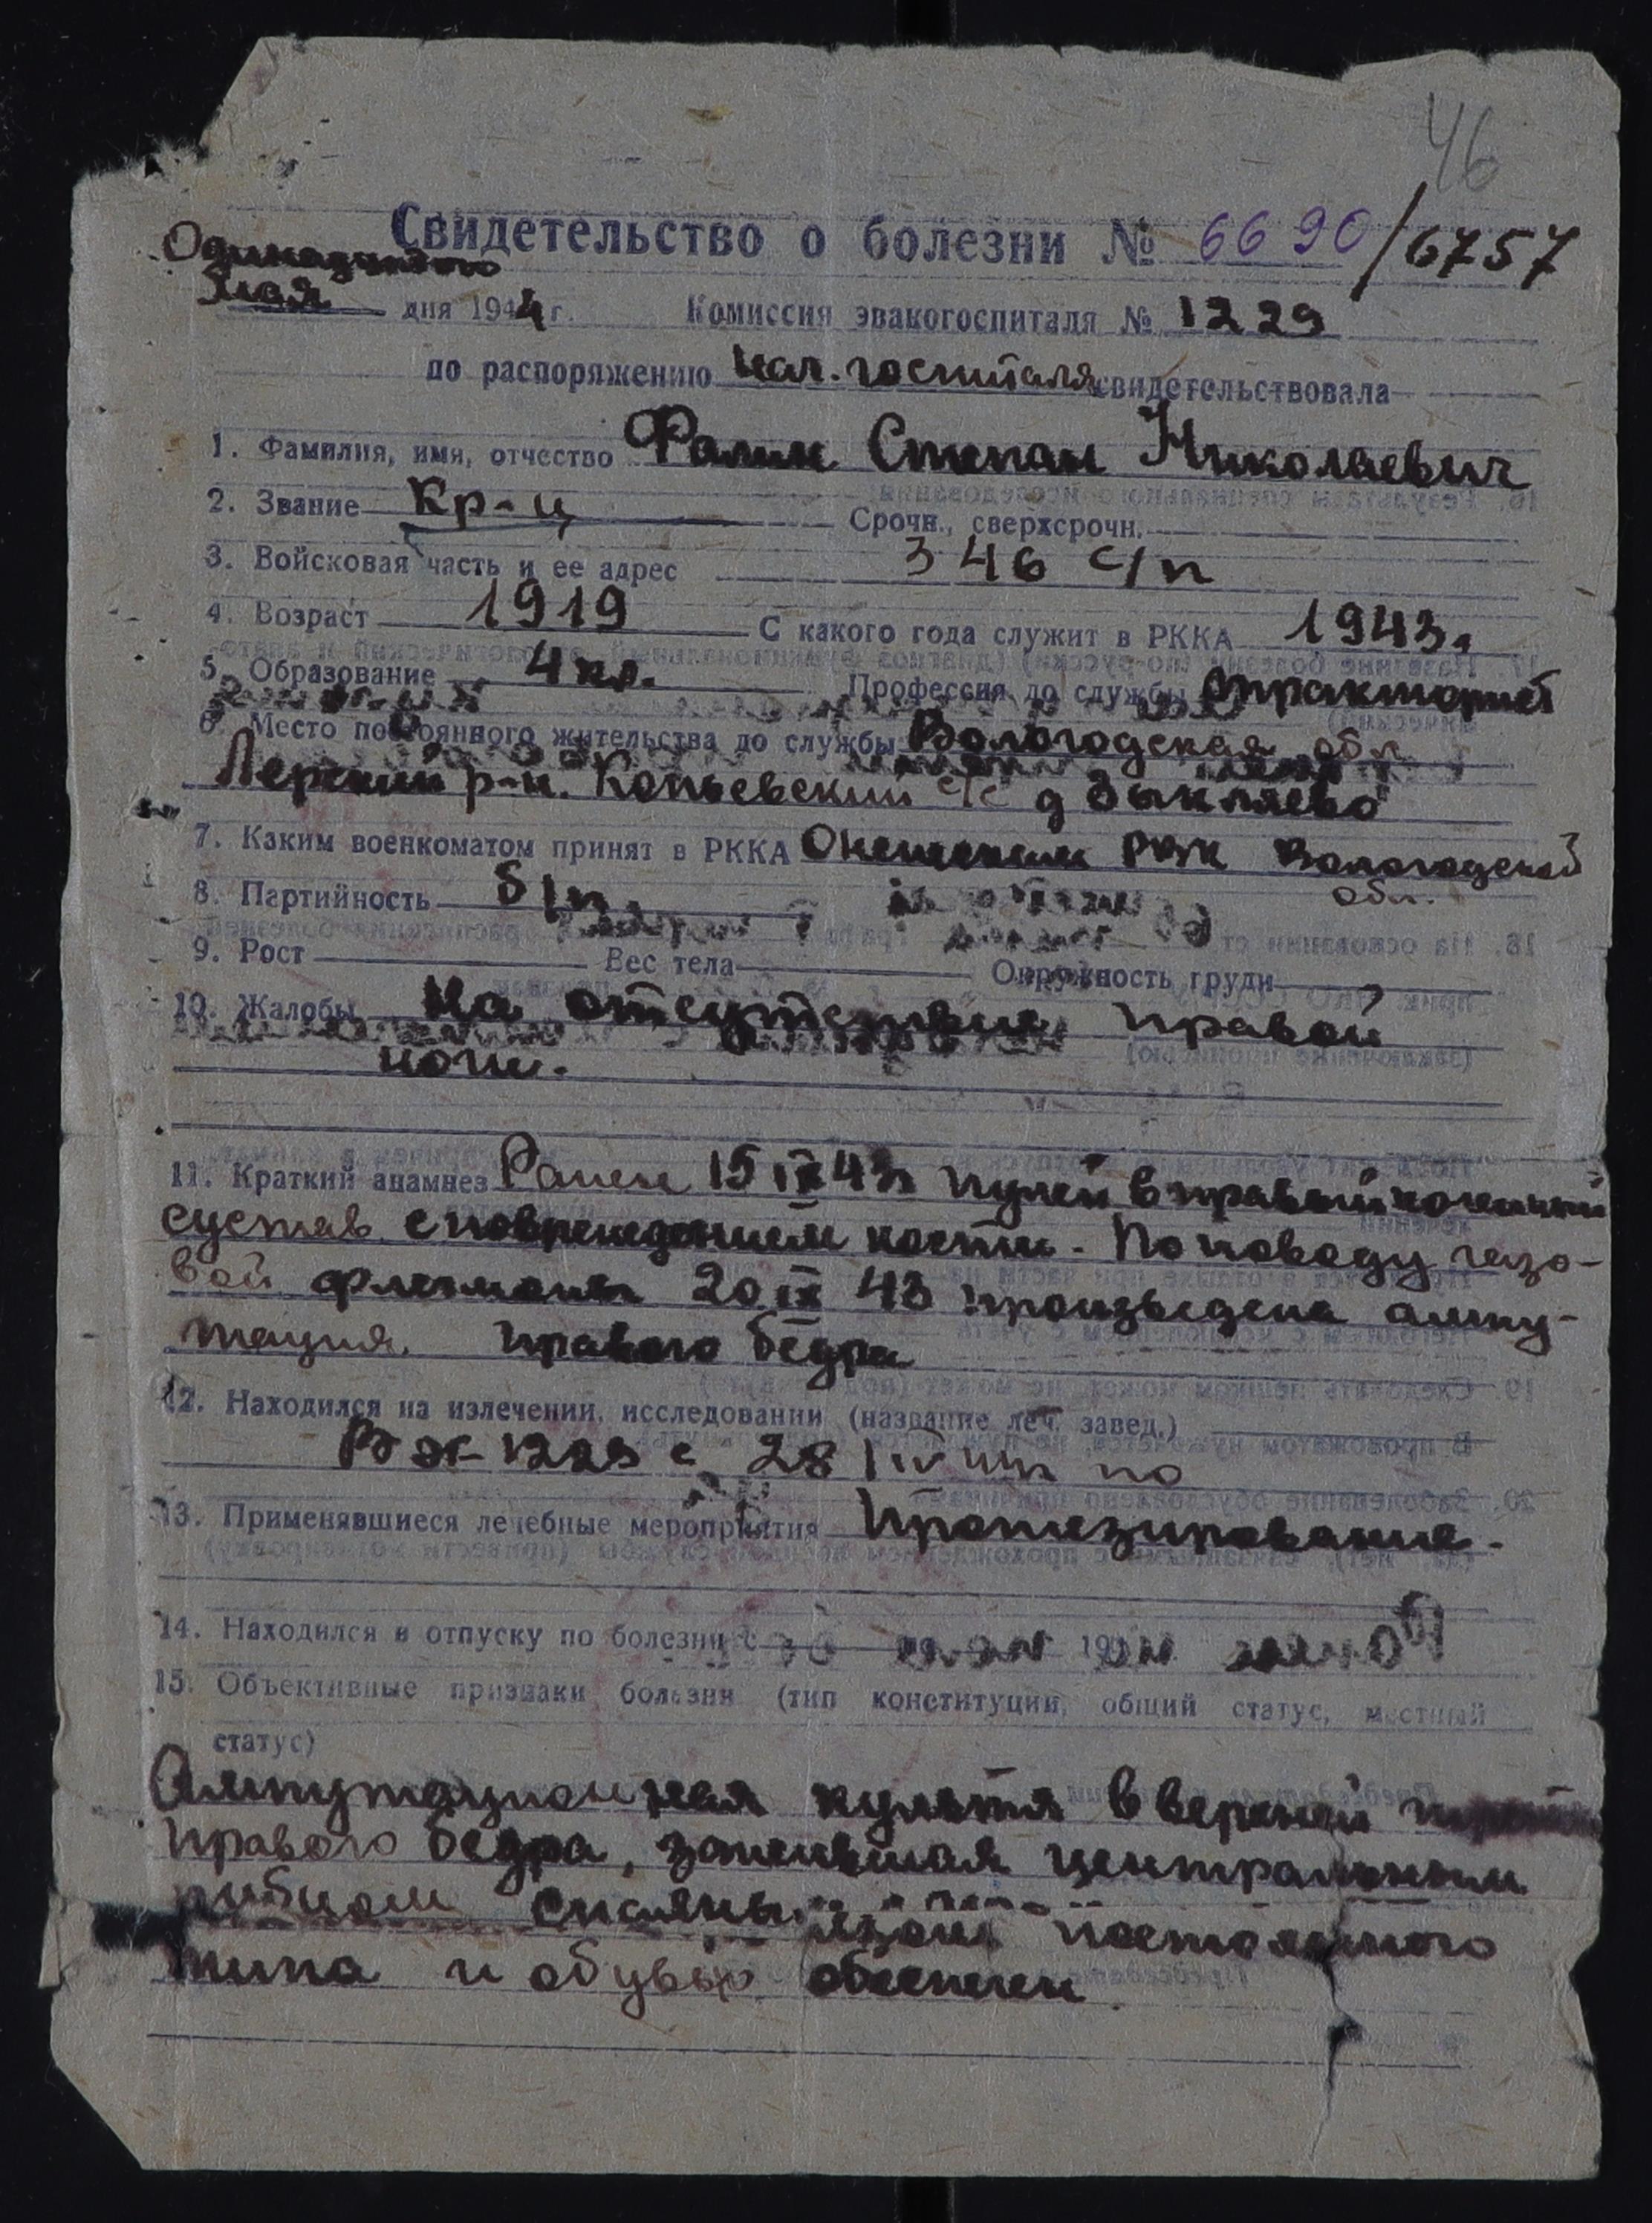 46
Свидетельство о болезни № 6690/6757
Одиннадцатого
мая дня 1944 г. Комиссия эвакогоспиталя № 1229
по распоряжению нач. госпиталя свидетельствовала
1. Фамилия, имя, отчество Фалин Степан Николаевич
2. Звание Кр-ц Срочн., сверхсрочн.
3. Войсковая часть и ее адрес 346 с/п
4. Возраст 1919 С какого года служит в РККА 1943г
5. Образование 4 кл. Профессия до службы тракторист
6. Место постоянного жительства до службы Вологодская обл
р-н. Копьевский с/с д Зыкляево
7. Каким военкоматом принят в РККА РВК Вологодской
обл.
8. Партийность б/п
9. Рост Вес тела Окружность груди
10. Жалобы На отсутствие правой
ноги.
11. Краткий анамнез Ранен 15 IX 43г пулей в правый коленный
сустав с повреждением кости. По поводу газо-
вой флегмоны 20 IX 43 произведена ампу-
тация правого бедра
12. Находился на излечении, исследовании (название леч. завед.)
В ЭГ-1229 с 28/IV 44г по
13. Применявшиеся лечебные мероприятия Протезирование.
14. Находился в отпуску по болезни с 19
15. Объективные признаки болезни (тип конституции, общий статус, местный
статус)
Ампутационная культя в верхней трети
правого бедра, зажившая центральным
рубцом постоянного
типа и обувью обеспечен